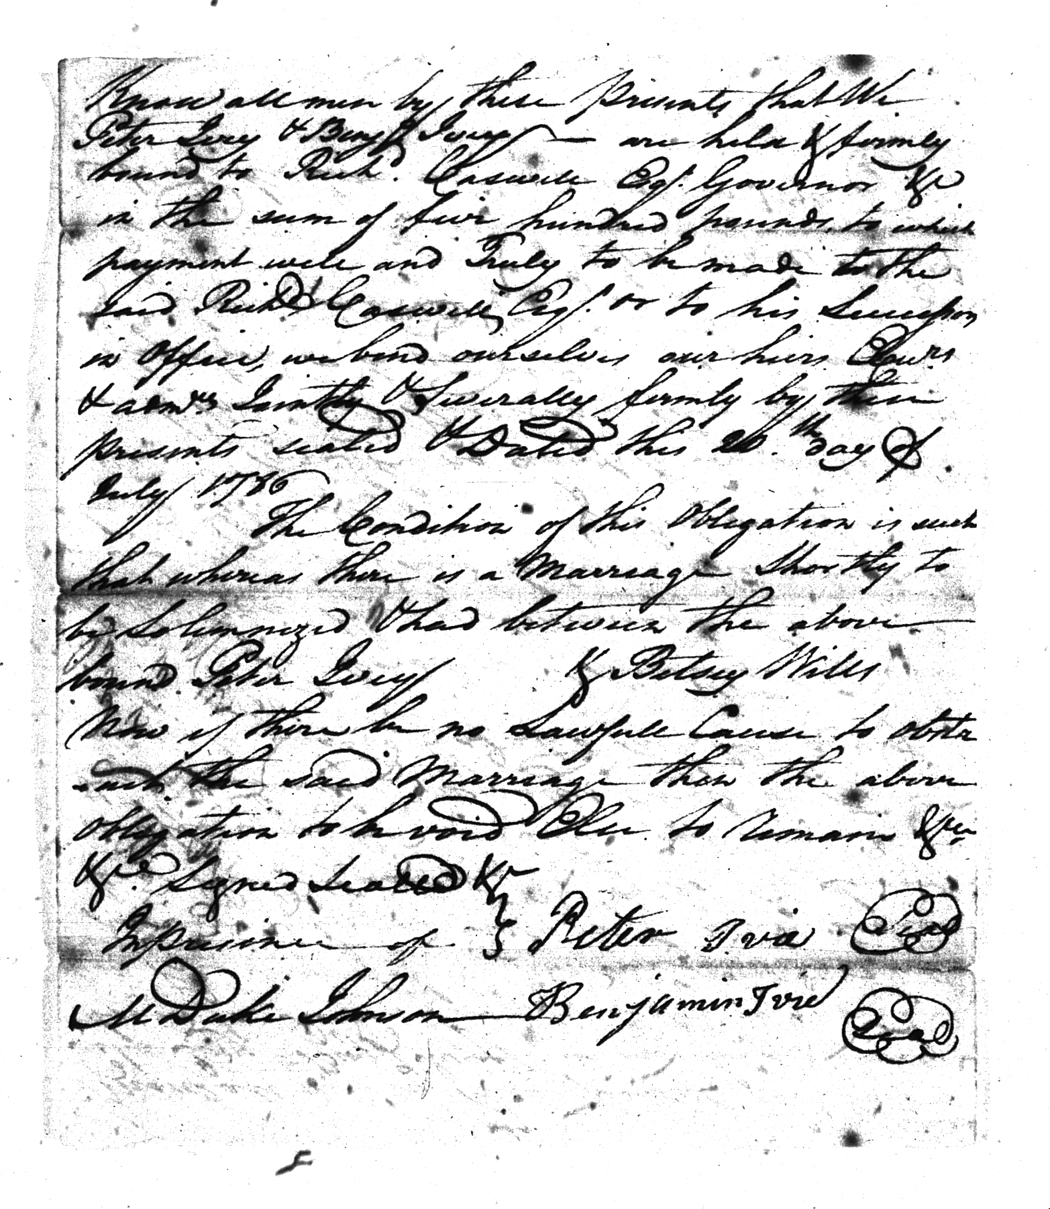 Know all men by these presents that We
Peter Ivey & Benj. Ivey — are held & firmly
bound to Richd. Caswell Esqr. Governor &c
in the sum of five hundred pounds to which
payment well and Truly to be made to the
said Richd. Caswell, Esqr. or to his Successors
in Office, we bind ourselves our heirs Exurs
& admrs Jointly & Severally firmly by these
presents sealed & Dated this 20th. day of
July 1786
The Condition of this Obligation is such
that whereas there is a Marriage Shortly to
be Solemnized & had between the above
bound Peter Ivey & Betsey Wills
Now if there be no Lawfull Cause to obstr
uct the said Marriage then the above
Obligation to be void Else to remain &c
&c. Signed Sealed &c
In presence of Peter Ivie Seal
M Duke Johnson Benjamin Ivie Seal